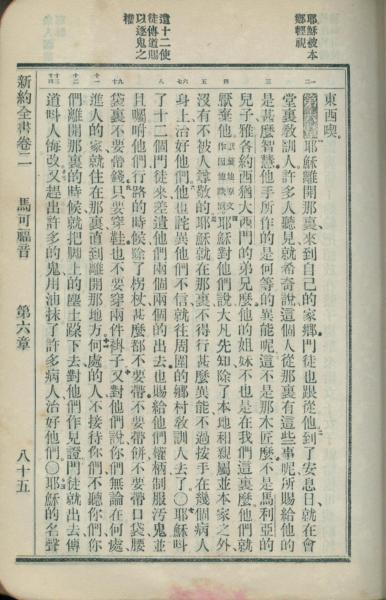 耶穌被本
鄉輕視
遣十二使
徒傳道賜
以逐鬼之
權
東西喫
第六章耶穌離開那裏來到自己的家鄉門徒也跟從他到了安息日就在會
堂裏敎訓人許多人聽見就希奇說這個人從那裏有這些事呢所賜給他的
是甚麼智慧他手所作的是何等的異能呢這不是那木匠麼不是馬利亞的
兒子雅各約西猶大西門的弟兄麼他的姐妹不也是在我們這裏麼他們就
厭棄他耶穌對他們說大凡先知除了本地和親屬並本家之外
沒有不被人尊敬的耶穌就在那裏不得行甚麼異能不過按手在幾個病人
身上治好他們他也詫異他們不信就往周圍的鄉村敎訓人去了〇耶穌呌
了十二個門徒來差遣他們兩個兩個的出去也賜給他們權柄制服汚鬼並
且囑咐他們行路的時候除了柺杖甚麼都不要帶不要帶餅不要帶口袋腰
袋裏不要帶錢只要穿鞋也不要穿兩件褂子又對他們說你們無論在何處
進人的家就住在那裏直到離開那地方何處的人不接待你們不聽你們你
們離開那裏的時候就把脚上的塵土跺下去對他們作見證門徒就出去傳
道呌人悔改又趕出許多的鬼用油抹了許多病人治好他們〇耶穌的名聲
新約全書卷二 馬可福音 第六章 八十五